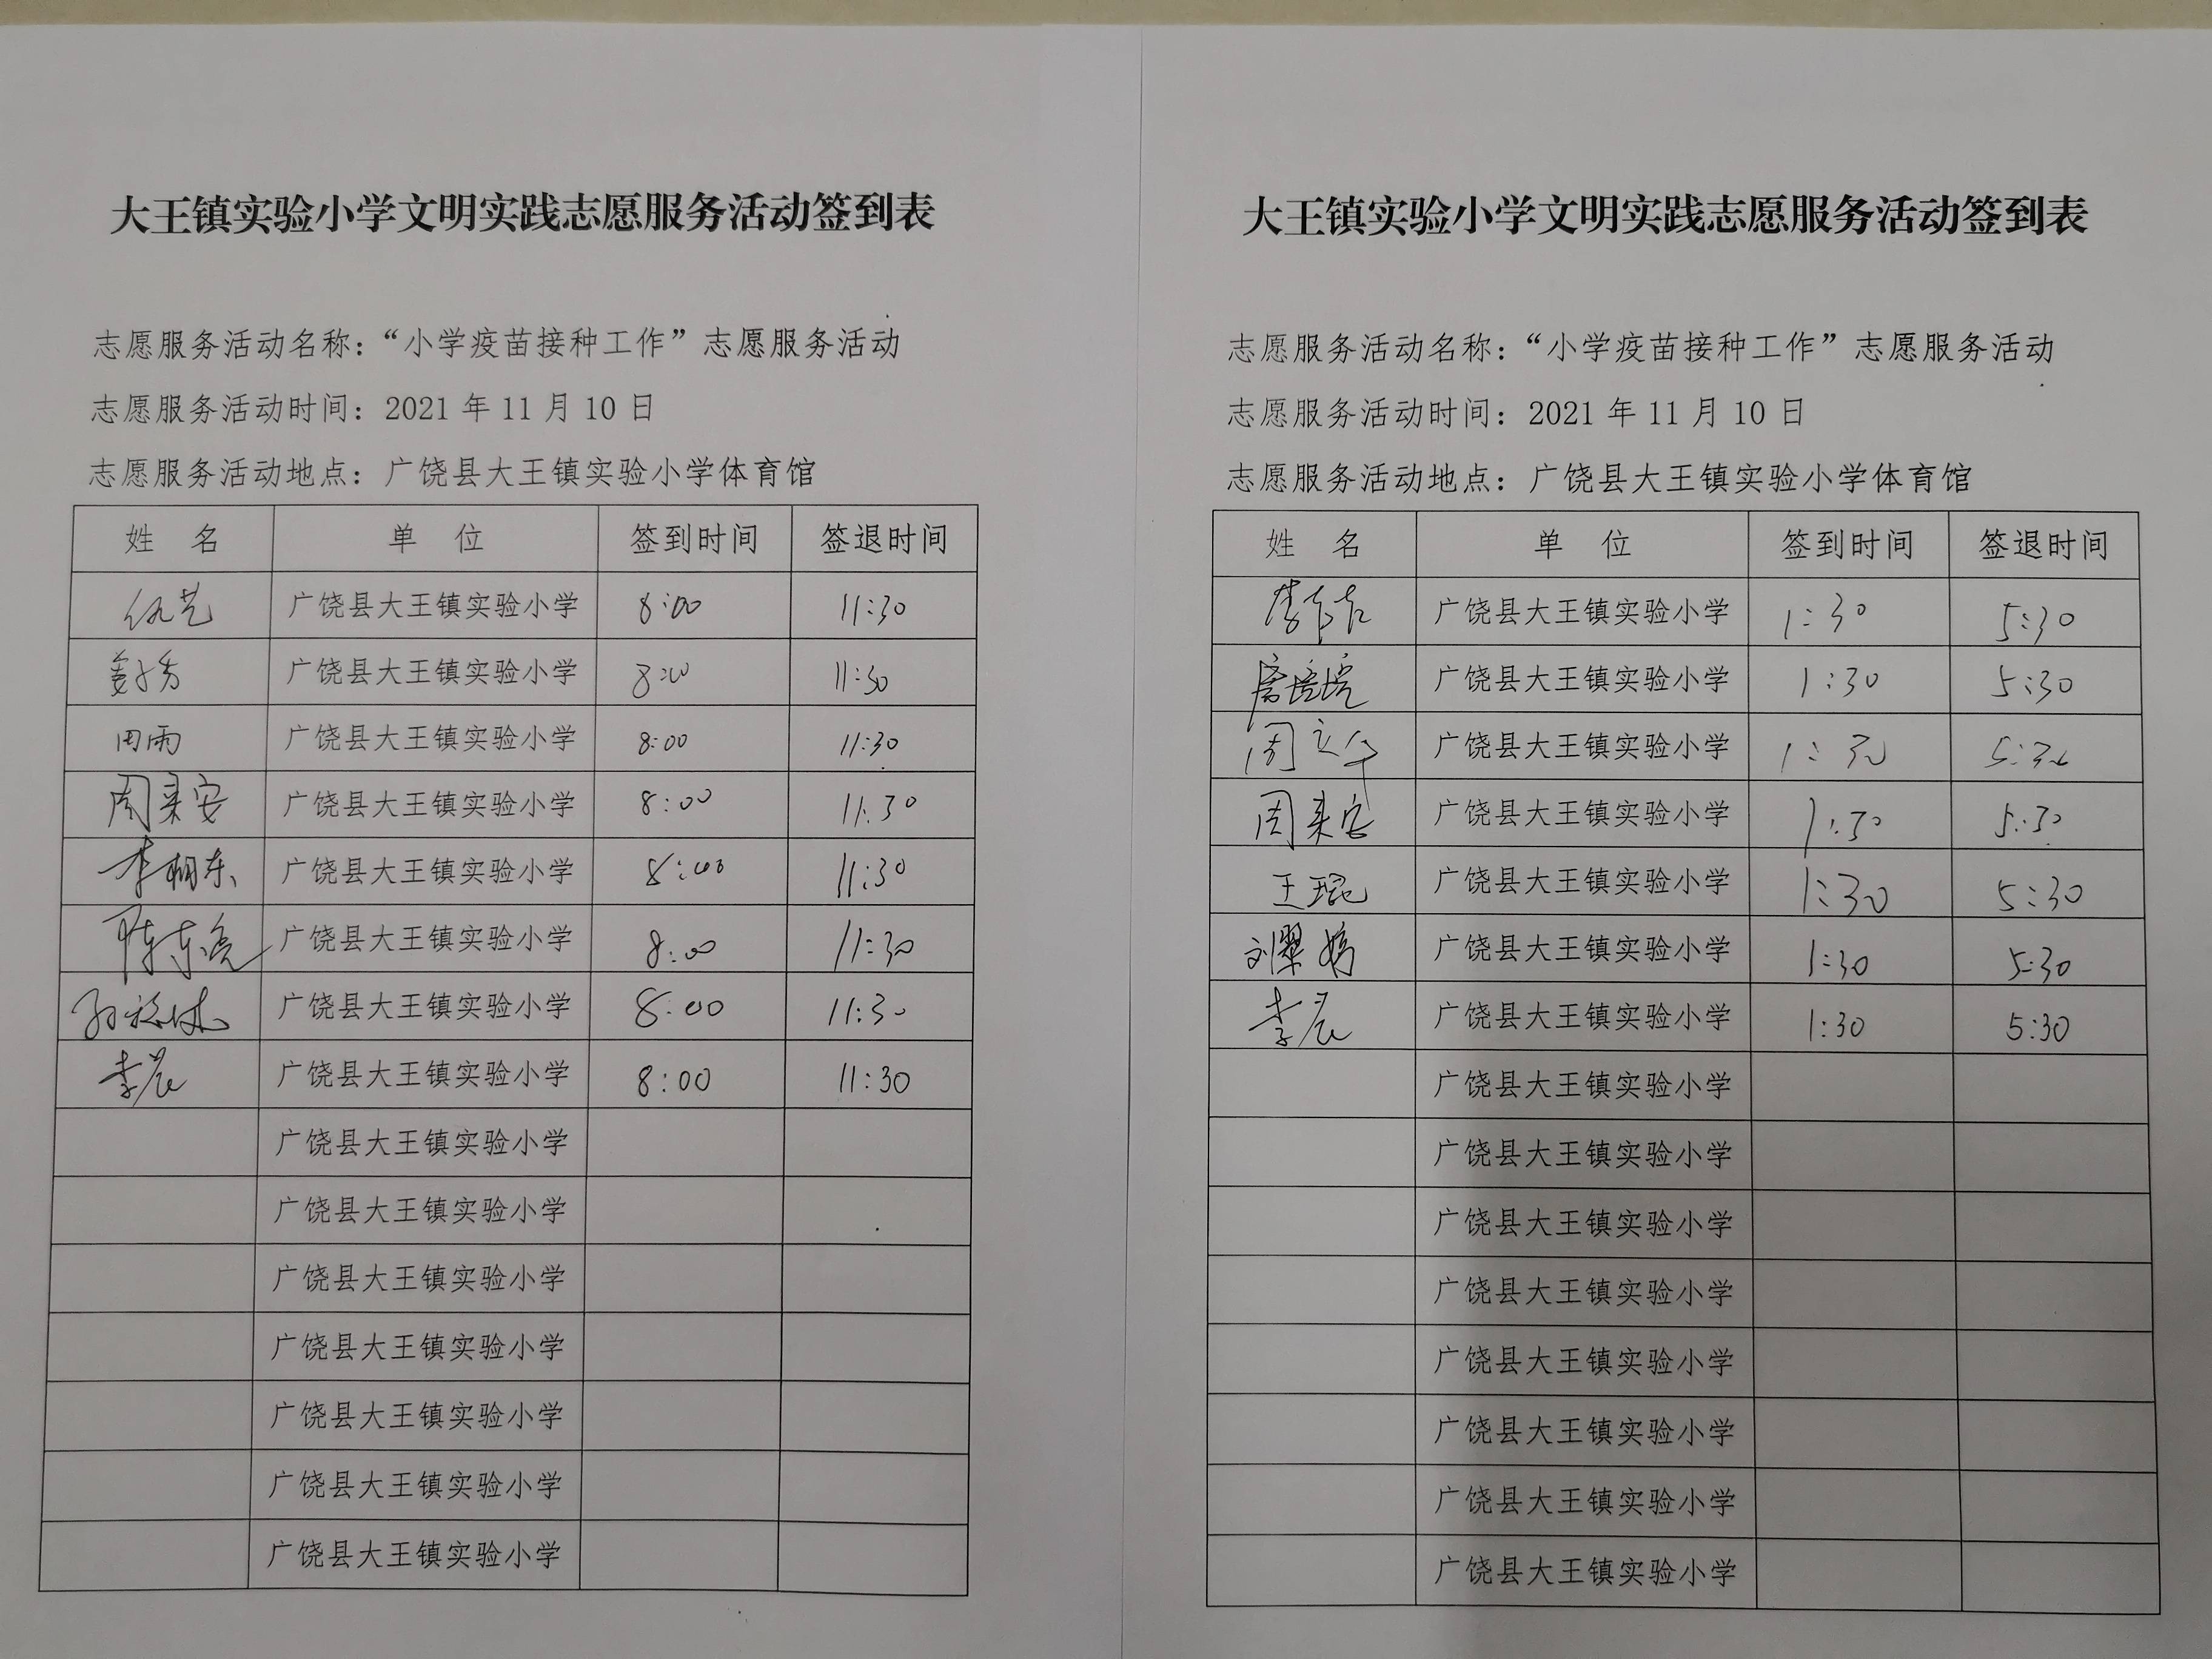 大王镇实验小学文明实践志愿服务活动签到表
志愿服务活动名称：“小学疫苗接种工作”志愿服务活动
志愿服务活动时间：2021年11月10日
志愿服务活动地点：广饶县大王镇实验小学体育馆
姓 名 单 位 签到时间 签退时间
仇艺 广饶县大王镇实验小学 8:00 11:30
广饶县大王镇实验小学 8:00 11:30
周雨 广饶县大王镇实验小学 8:00 11:30
周来安 广饶县大王镇实验小学 8:00 11:30
广饶县大王镇实验小学 8:00 11:30
陈东亮 广饶县大王镇实验小学 8:00 11:30
广饶县大王镇实验小学 8:00 11:30
李晨 广饶县大王镇实验小学 8:00 11:30
广饶县大王镇实验小学
广饶县大王镇实验小学
广饶县大王镇实验小学
广饶县大王镇实验小学
广饶县大王镇实验小学
广饶县大王镇实验小学
广饶县大王镇实验小学
大王镇实验小学文明实践志愿服务活动签到表
志愿服务活动名称：“小学疫苗接种工作”志愿服务活动
志愿服务活动时间：2021年11月10日
志愿服务活动地点：广饶县大王镇实验小学体育馆
姓 名 单 位 签到时间 签退时间
广饶县大王镇实验小学 1:30 5:30
广饶县大王镇实验小学 1:30 5:30
广饶县大王镇实验小学 1:30 5:30
周来安 广饶县大王镇实验小学 1:30 5:30
王琨 广饶县大王镇实验小学 1:30 5:30
广饶县大王镇实验小学 1:30 5:30
李晨 广饶县大王镇实验小学 1:30 5:30
广饶县大王镇实验小学
广饶县大王镇实验小学
广饶县大王镇实验小学
广饶县大王镇实验小学
广饶县大王镇实验小学
广饶县大王镇实验小学
广饶县大王镇实验小学
广饶县大王镇实验小学